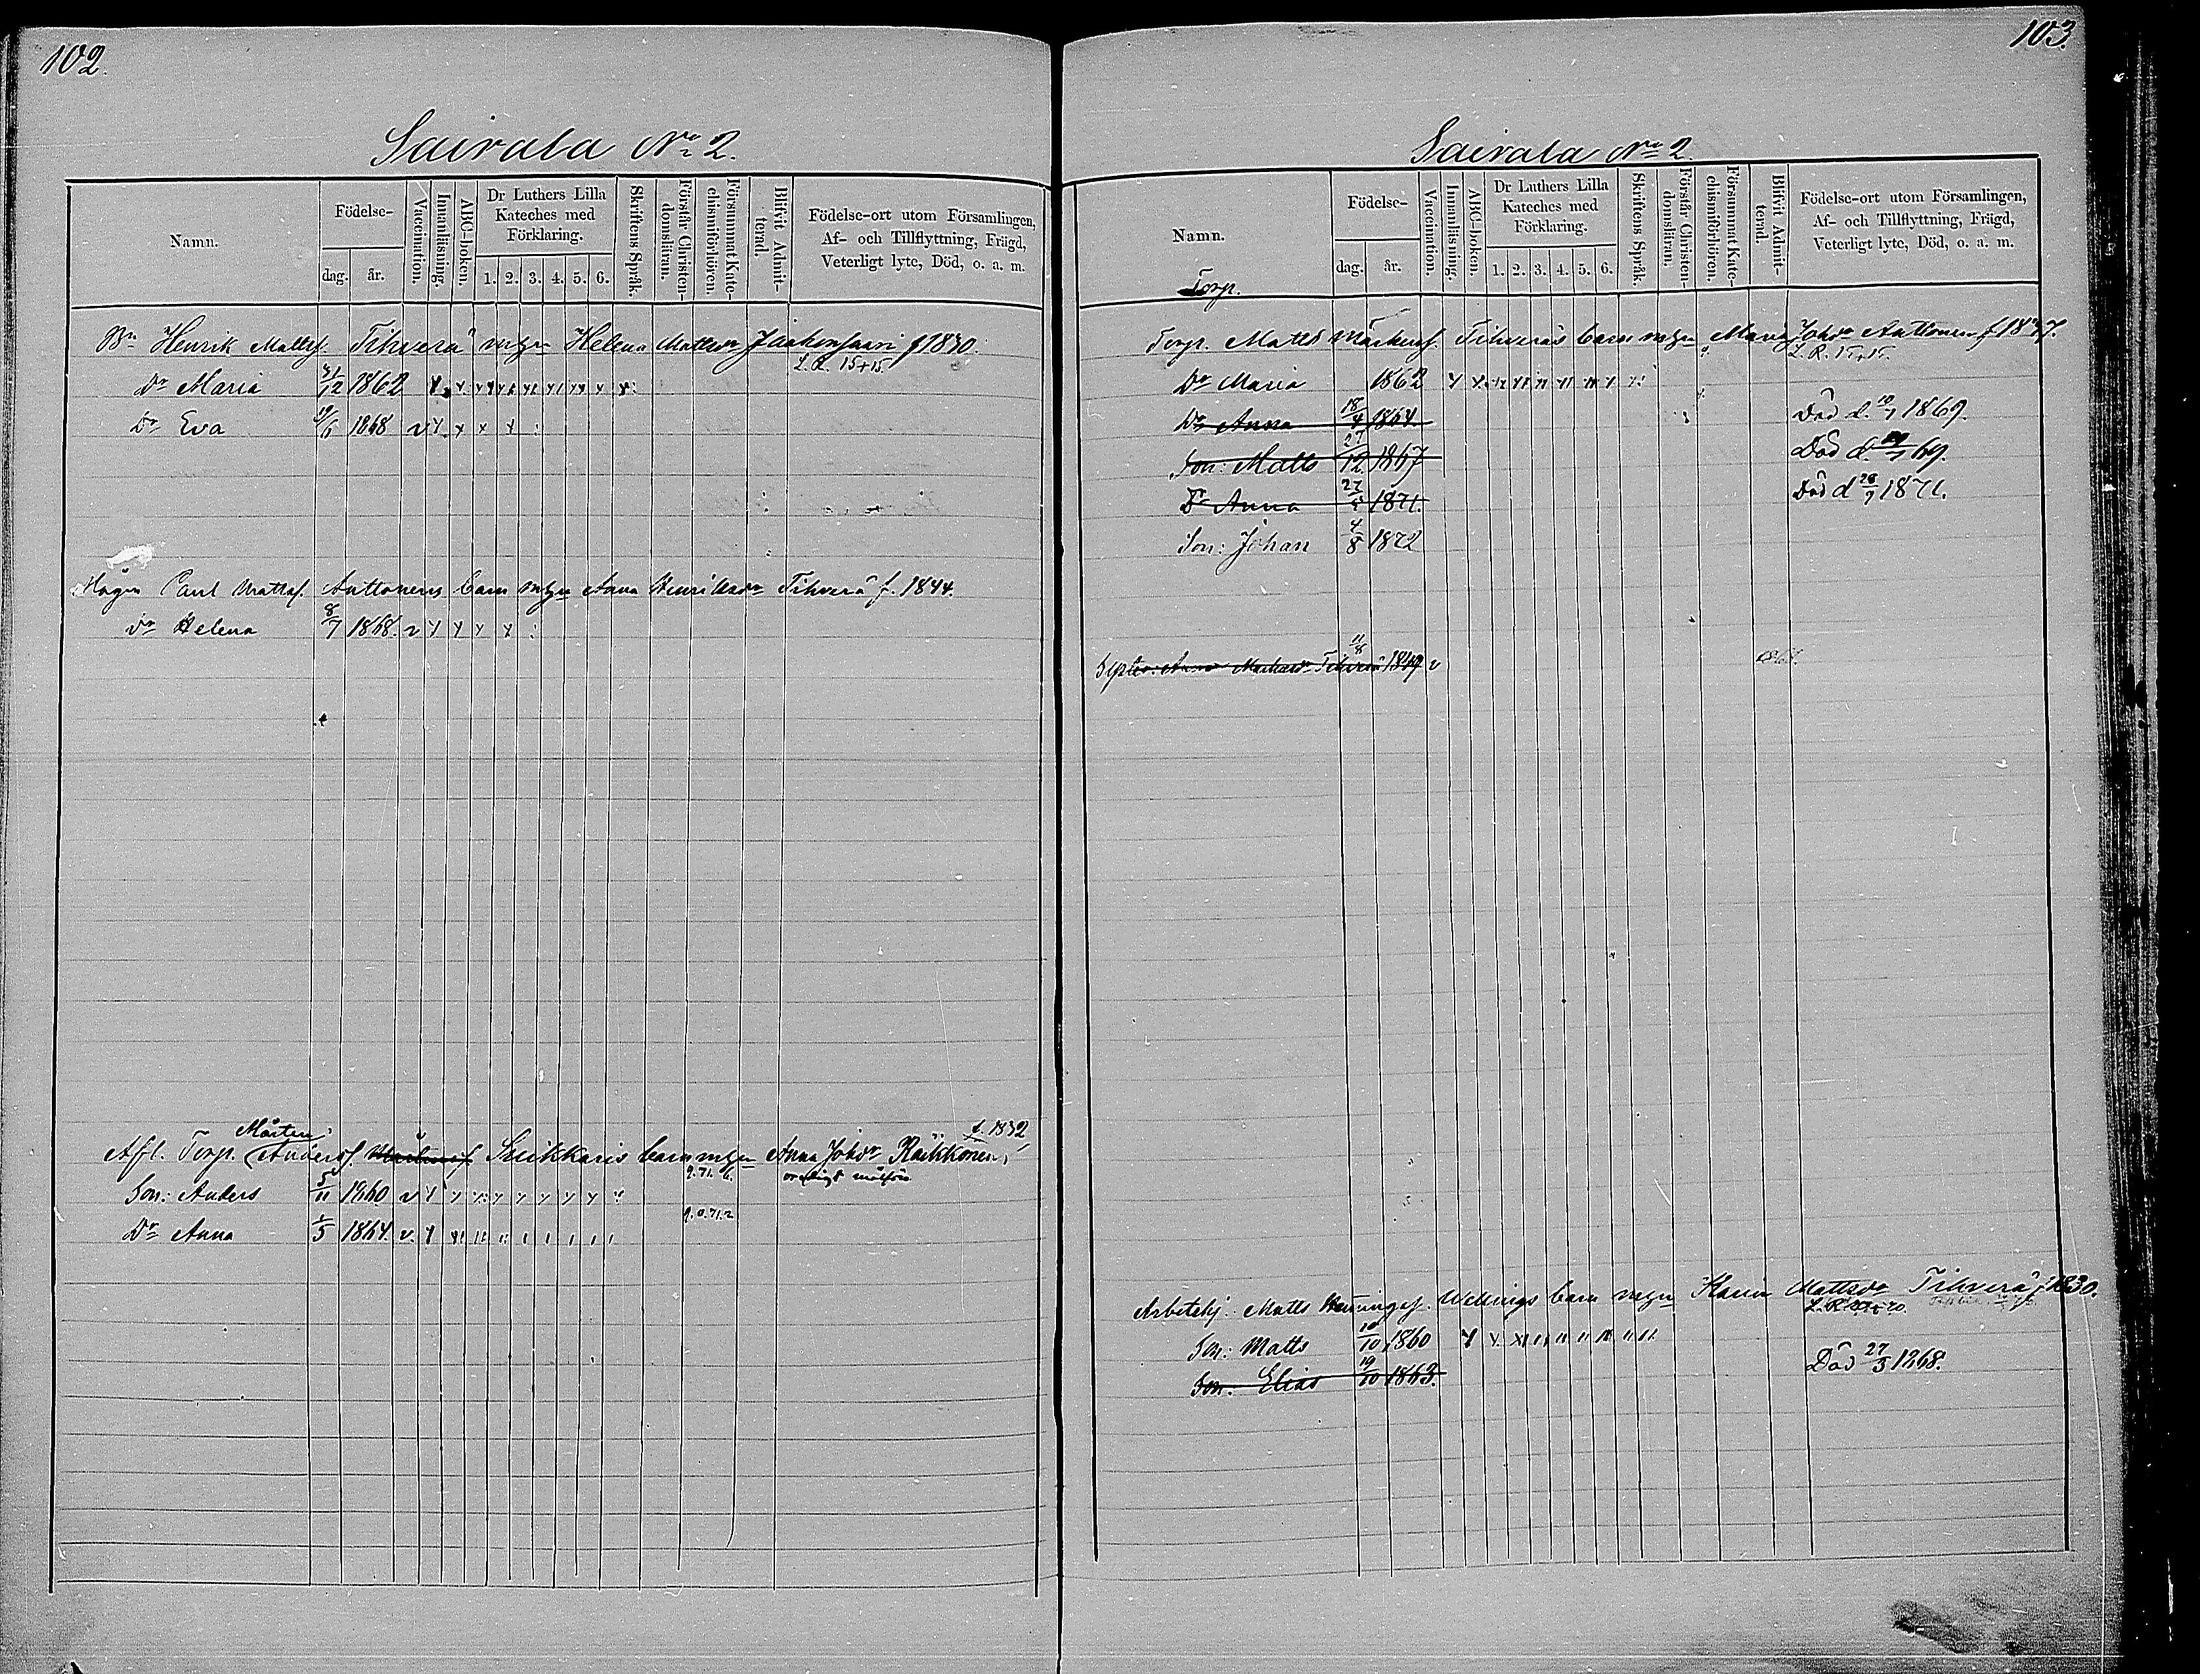 102.
Sairala No 2.
Namn.
Födelse-
dag.
år.
Vaccination.
Innanläsning.
ABC-boken.
Dr Luthers Lilla Kateches med Förklaring.
1. 2. 3. 4. 5. 6.
Skriftens Språk.
Förstår Christen-domsläran.
Försummat Kate-chismiförhören.
Blifvit Admit-terad.
Födelse-ort utom Församlingen, Af- och Tillflyttning, Frägd, Veterligt lyte, Död, o. a. m.
Bn Henrik Mattsf. Tihverä mgn Helena Mattsdr Jaakonsaari f 1830.
L. R. 15+15.
Dr Maria 31/12 1862
Dr Eva 19/6 1868 v
Mågen Paul Mattsf. Anttonens barn mgn Anna Henriksdr Tihverä f. 1844.
Dr Helena 8/7 1868. v
Mårten
f. 1832
Afl. Torp. Andersf. Suikkaris barn mgn Anna Johsdr Räikkönen,
9. 71. 6.
Son: Anders 5/11 1860 v
9. 0. 71. 2
Dr Anna 1/5 1864. v.
103.
Sairala No 2.
Namn.
Födelse-
dag.
år.
Vaccination.
Innanläsning.
ABC-boken.
Dr Luthers Lilla Kateches med Förklaring.
1. 2. 3. 4. 5. 6.
Skriftens Språk.
Förstår Christen-domsläran.
Försummat Kate-chismiförhören.
Blifvit Admit-terad.
Födelse-ort utom Församlingen, Af- och Tillflyttning, Frägd, Veterligt lyte, Död, o. a. m.
Torp.
Torp. Matts Markusf. Tihveräs barn mgn Maria Johsdr Anttonen f 1837.
L. R. 15+15.
Dr Maria 1862
Dr Anna 18/4 1864. Död d. 10/1 1869.
Son: Matts 27/12 1867 Död d. 69.
Dr Anna 1871. Död d 28/9 1871.
Son: Johan 4/8 1872
Syster: Anna Markusdr Tihverä 11/8 1849 v
Arbetskj: Matts Henningsf. Wellings barn mgn Karin Mattsdr Tihverä f 1830.
Son: Matts 1860
Son: Elias 19/10 1863. Död 27/5 1868.